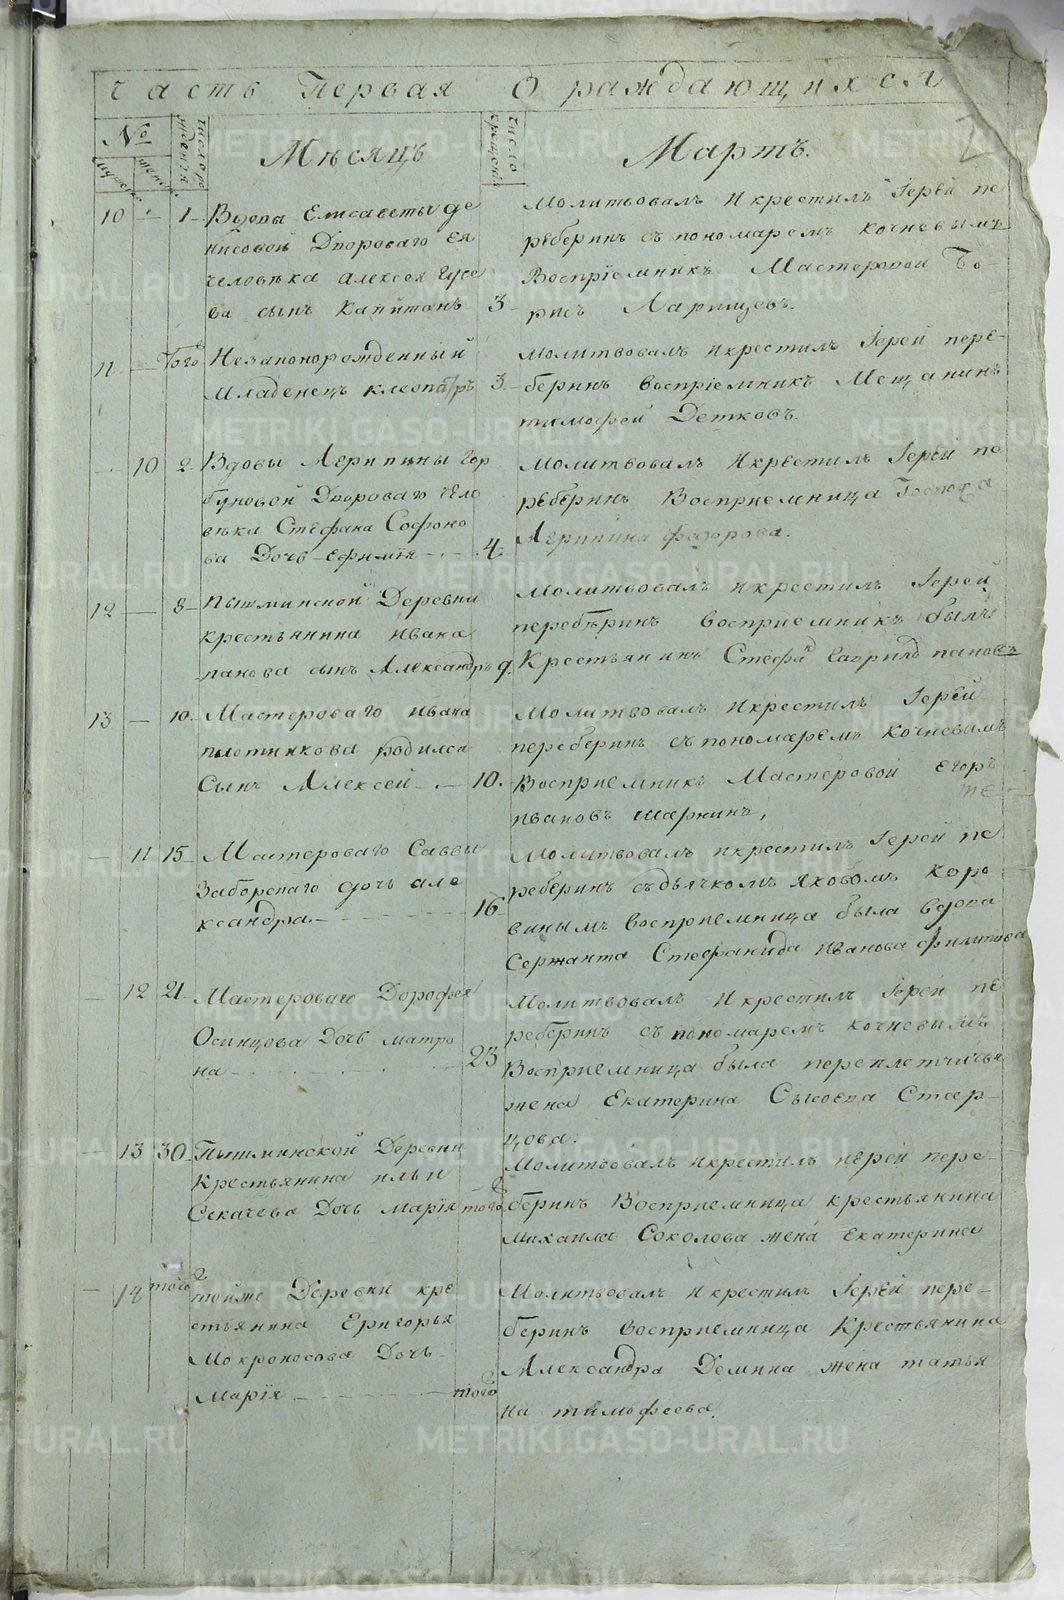 Часть Первая О раждающихся
№
мужеска
женска
число рождения
Мѣсяцъ
число крещения
Мартъ.
10 - 1 Вдовы Елисаветы де
нисовой Двороваго ея
человѣка Алексея Гусе
ва сынъ Капитонъ 3
Молитвовалъ и крестилъ Іерей пе
реберинъ съ пономаремъ Кочневымъ
Воспріемникъ Мастеровой Бо-
рисъ Ларицевъ.
11 - Того Незаконорожденный
Младенецъ Клеопатръ 3
Молитвовалъ и крестилъ Іерей пере-
беринъ воспріемникъ Мещанинъ
тимофей Детковъ.
- 10 2 Вдовы Агрипины Гор
буновой Двороваго чело
вѣка Стефана Софоно
ва Дочь Ефимія 4
Молитвовалъ и крестилъ Іерей пе
реберинъ Восприемница Госпожа
Агрипина федорова.
12 - 8 Пышминской Деревни
крестьянина Ивана
панова сынъ Александръ 9.
Молитвовалъ и крестилъ Іерей
переберинъ восприемникъ былъ
Крестьянинъ Стефан Гаврилов пановъ
13 - 10 Мастероваго Ивана
плотникова родился
Сынъ Алексей 10.
Молитвовалъ и крестилъ Іерей
переберинъ съ пономаремъ Кочневымъ
Восприемникъ Мастеровой Егоръ
Ивановъ Шаркинъ,
- 11 15 Мастероваго Саввы
Заборскаго дочь але
ксандра 16
Молитвовалъ и крестилъ Іерей пе
реберинъ съ дьячкомъ Яковомъ Коро
винымъ восприемница была вдова
Сержанта Стефанида Иванова Филипова
- 12 21 Мастероваго Дорофея
Осинцова Дочь матро
на 23
Молитвовалъ и крестилъ Іерей пе
реберинъ съ пономаремъ Кочневымъ
Восприемница была переплетчичья
жена Екатерина Сысоева Стар-
цова.
- 13 30 Пышминской Деревни
Крестьянина ильи
Секачева Дочь Марія того
Молитвовалъ и крестилъ иерей пере-
беринъ Восприемница крестьянина
Михаила Соколова жена Екатерина
- 14 того тойже Деревни кре
стьянина Григорья
Мокроносова Дочь
Марія того
Молитвовалъ и крестилъ Іерей пере-
беринъ восприемница Крестьянина
Александра Демина жена татья
на тимофеева.
METRIKI.GASO-URAL.RU